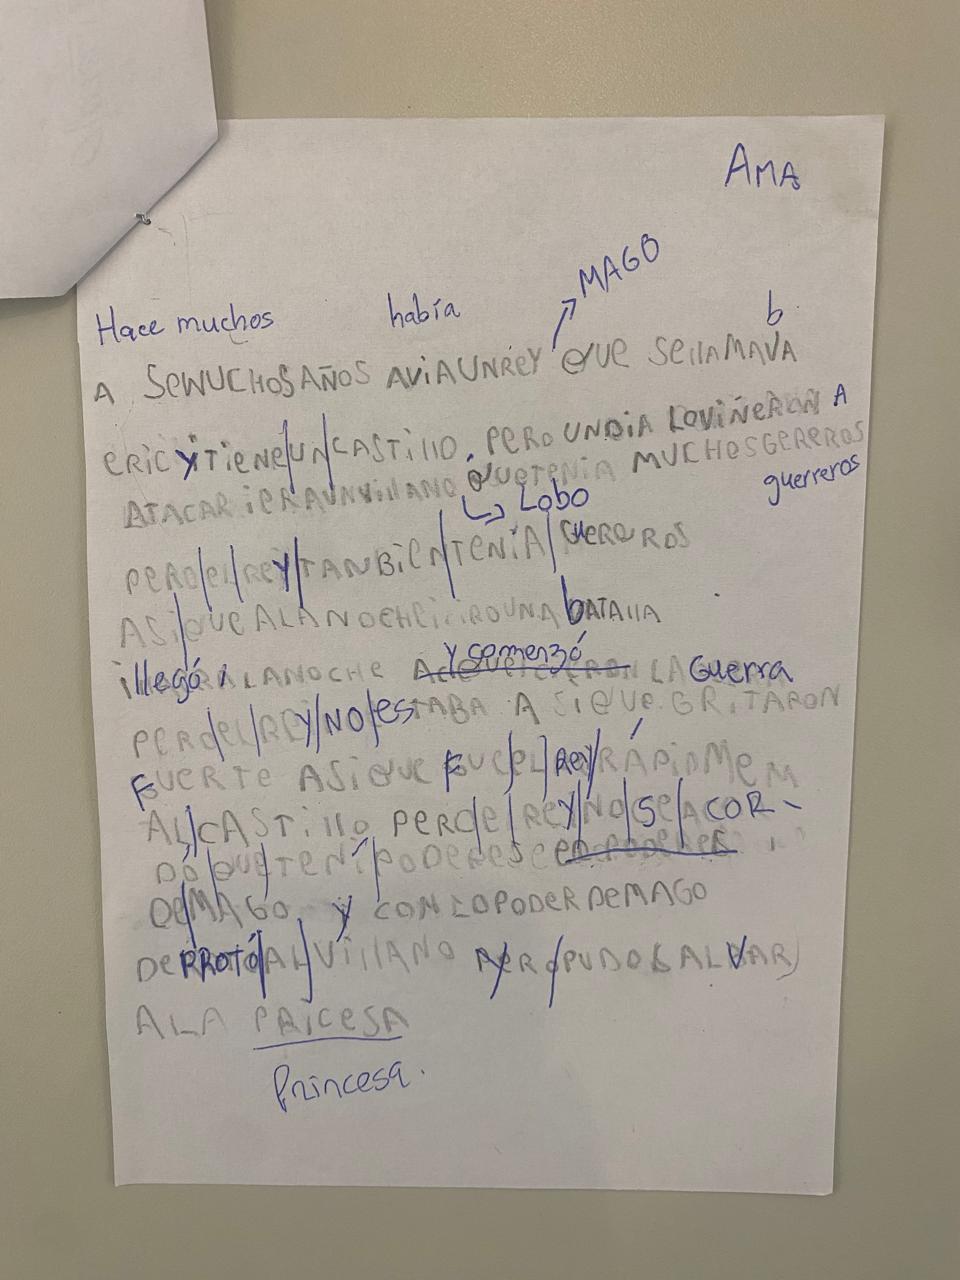 AMA
MAGO
Hace muchos había b
A SEWUCHOS AÑOS AVIAUNREY QUE SELLAMAVA
ERIC Y TIENE UN CASTILLO, PERO UNDIA LOVIÑERON A
ATACAR IERAUNVILLANO QUETENIA MUCHOSGEREROS
Lobo guerreros
PERO EL REY TANBIEN TENÍA GUEREROS
ASI QUE ALANOCHE UNA bATALLA
Y comenzó
llegó ALANOCHE LA Guerra
PERO EL REY NO ESTABA ASIQUE GRITARON
FUERTE ASIQUE FUE EL REY RÁPIDMEM
AL CASTILLO PERO EL REY NO SE ACOR-
DÓ QUE TENÍ PODERES
DE MAGO Y CON LOPODER DEMAGO
DERROTÓ AL VILLANO PUDO SALVAR
ALA PRICESA
Princesa.